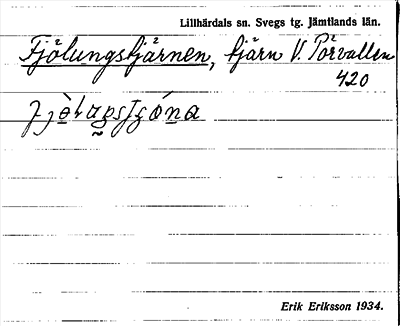 Lillhärdals sn. Svegs tg. Jämtlands län.
Fjölungstjärnen, tjärn V. Pörvallen
420
Erik Eriksson 1934.